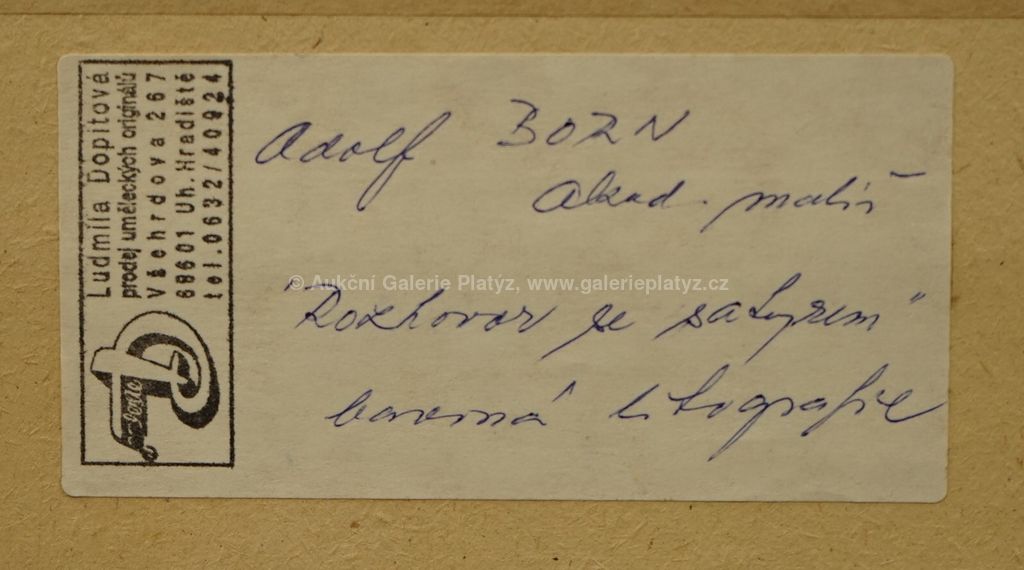 Ludmila Dopitová
prodej uměleckých originálů
Všehrdova 267
68601 Uh.Hradiště
tel.0632/40924
Adolf BORN
akad. malíř
© Aukční Galerie Platýz, www.galerieplatyz.cz
"Rozhovor se satyrem"
barevná litografie